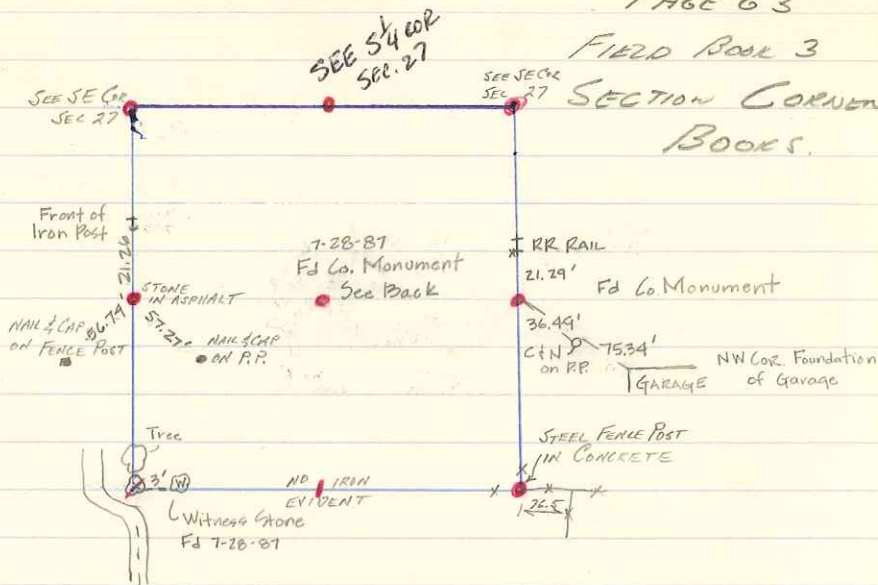 PAGE 63
FIELD BOOK 3
SECTION CORNER
BOOKS.
SEE S 1/4 COR
SEC. 27
SEE SE COR
SEC 27
SEE SE COR
SEC 27
Front of
Iron Post
21.26
STONE
IN ASPHALT
56.74
NAIL & CAP
ON FENCE POST
57.27
NAIL & CAP
ON P.P.
7-28-87
Fd Co. Monument
See Back
RR RAIL
21.29'
Fd Co. Monument
36.49'
C & N
on P.P.
75.34'
GARAGE
NW Cor. Foundation
of Garage
Tree
3'
W
Witness Stone
Fd 7-28-87
NO IRON
EVIDENT
STEEL FENCE POST
IN CONCRETE
26.5